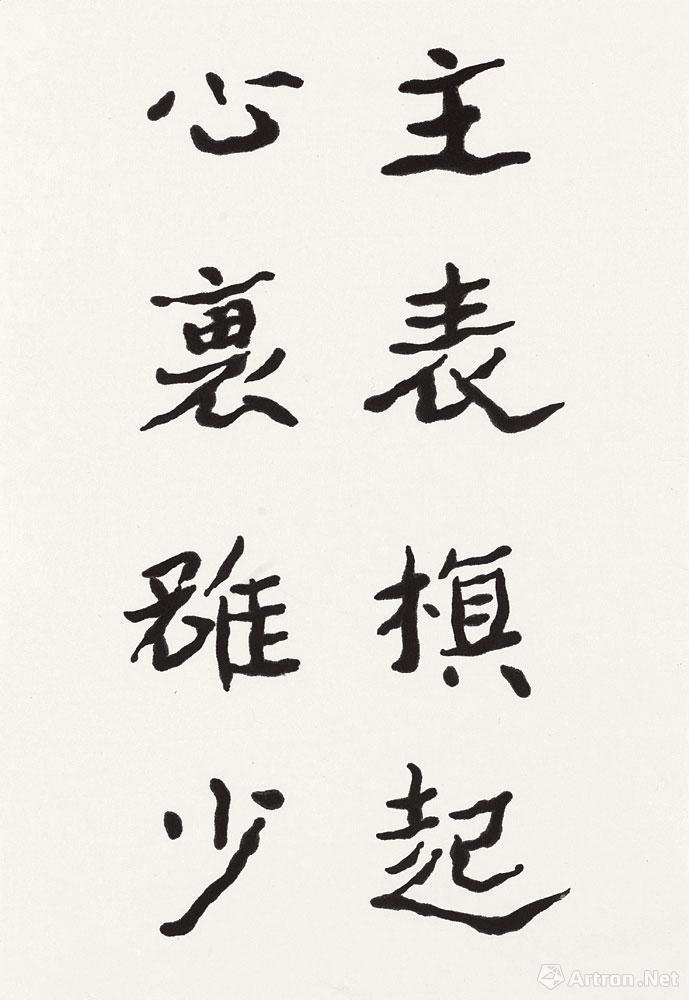 主表起
心裏少
Artron.Net